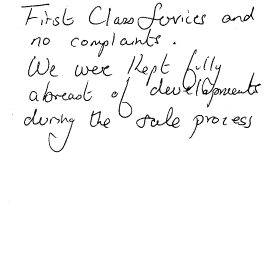 First Class Services and
no complaints.
We were Kept fully
abreast of developments
during the sale process